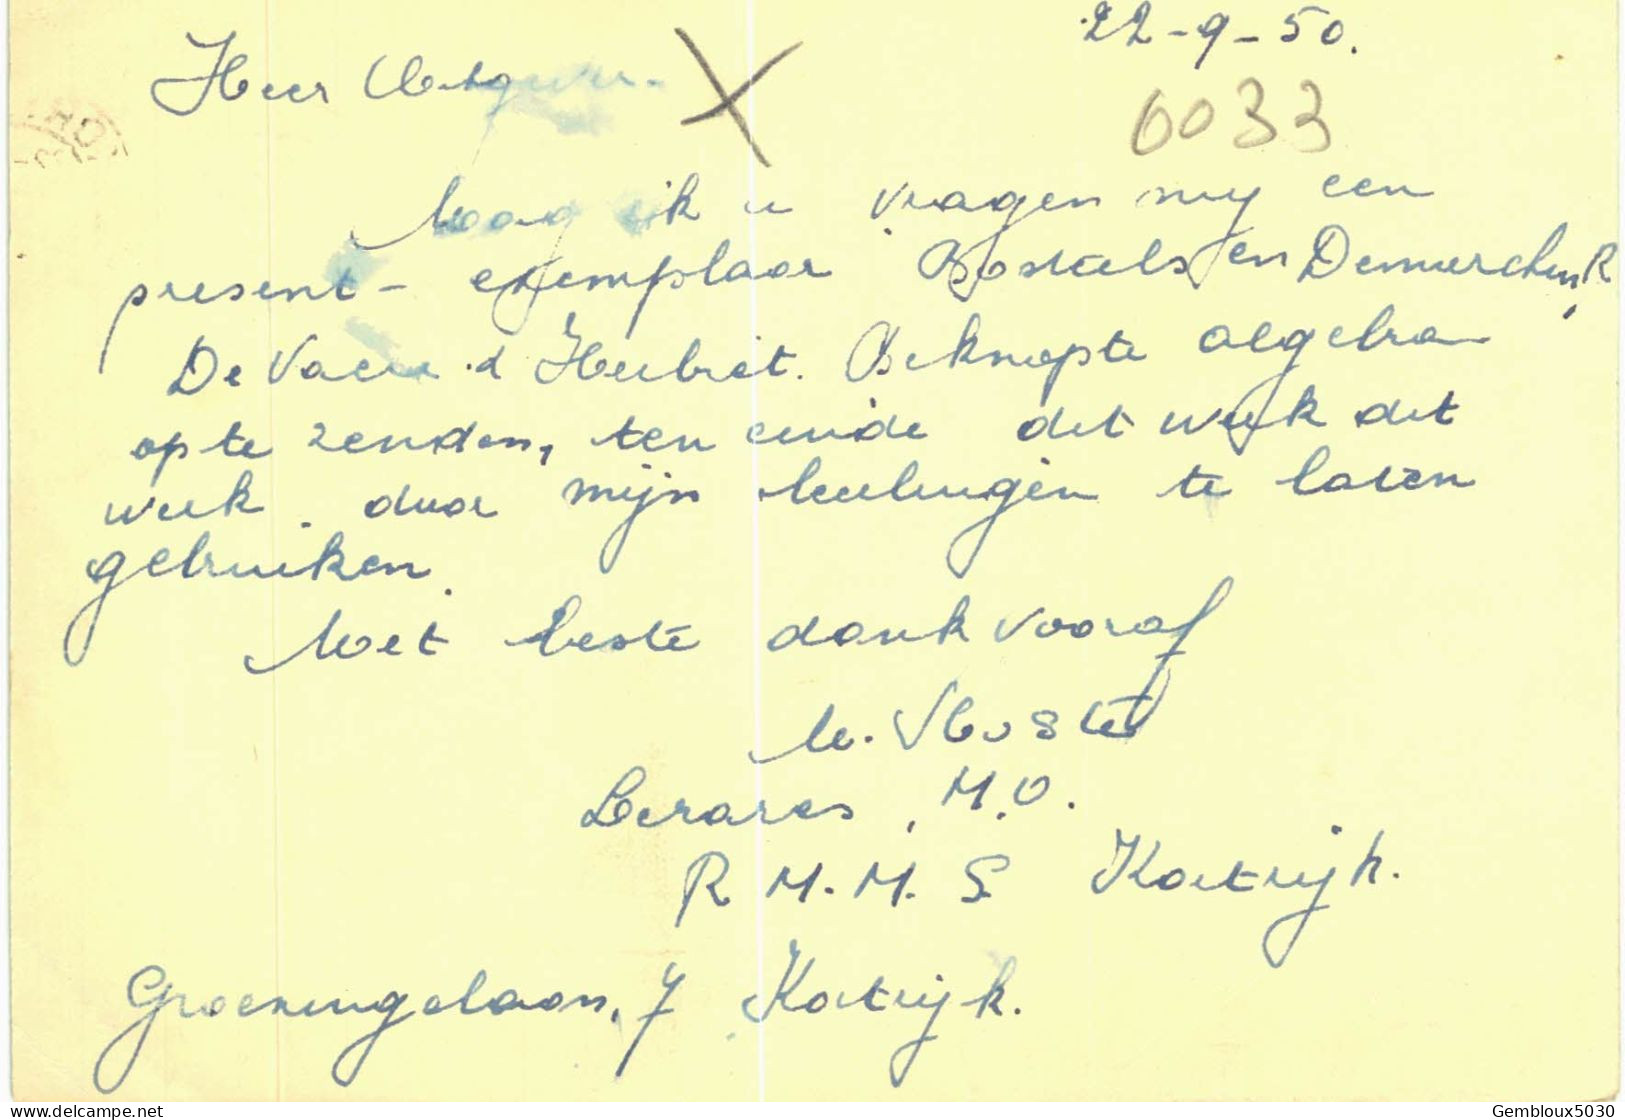 22-9-50.
Heer
0033
Maag ik u vragen mij een
present- exemplaar Bosteels en
De Vaere Herbiet. Beknopte algebra
op te zenden, ten einde dit werk dit
werk door mijn leerlingen te laten
gebruiken.
Met beste dank vooraf
M.
Lerares, M.O.
R M. M. S Kortrijk.
Groeningelaan, 7 Kortrijk.
Gembloux5030